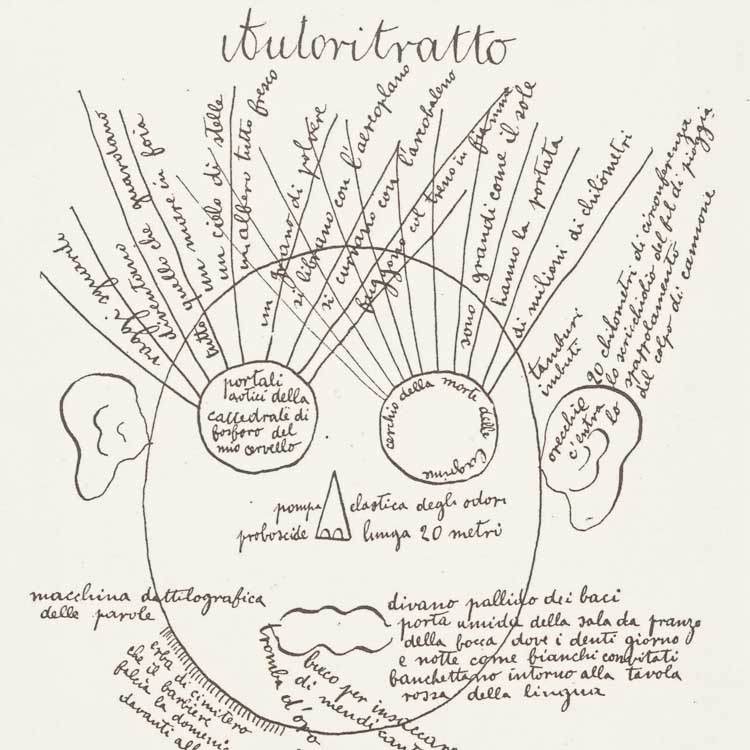 Autoritratto
raggi sguardi
diventano
tutto quello che guardiamo
un mare in
un cielo di stelle
un albero tutto fresco
un piano di polvere
si librano con l'aereoplano
si curvano con l'arcobaleno
fuggono col treno in fiamma
sono grandi come il sole
hanno la portata
di milioni di chilometri
tamburi
imbuti
20 chilometri di circonferenza
lo scricchiolio del fil di pioggia
spappolamento
del colpo di cannone
orecchie
c'entra
lo
portali
gotici della
cattedrale di
fosforo del
mio cervello
cerchio della morte delle lagrime
pompa elastica degli odori
proboscide lunga 20 metri
macchina dattilografica
delle parole
divano pallido dei baci
porta umida della sala da pranzo
della bocca dove i denti giorno
e notte come bianchi convitati
banchettano intorno alla tavola
rossa della lingua
erba di cimitero
che il barbiere
falcia la domenica
davanti all
tromba d'oro
buco per insaccare
di mendican